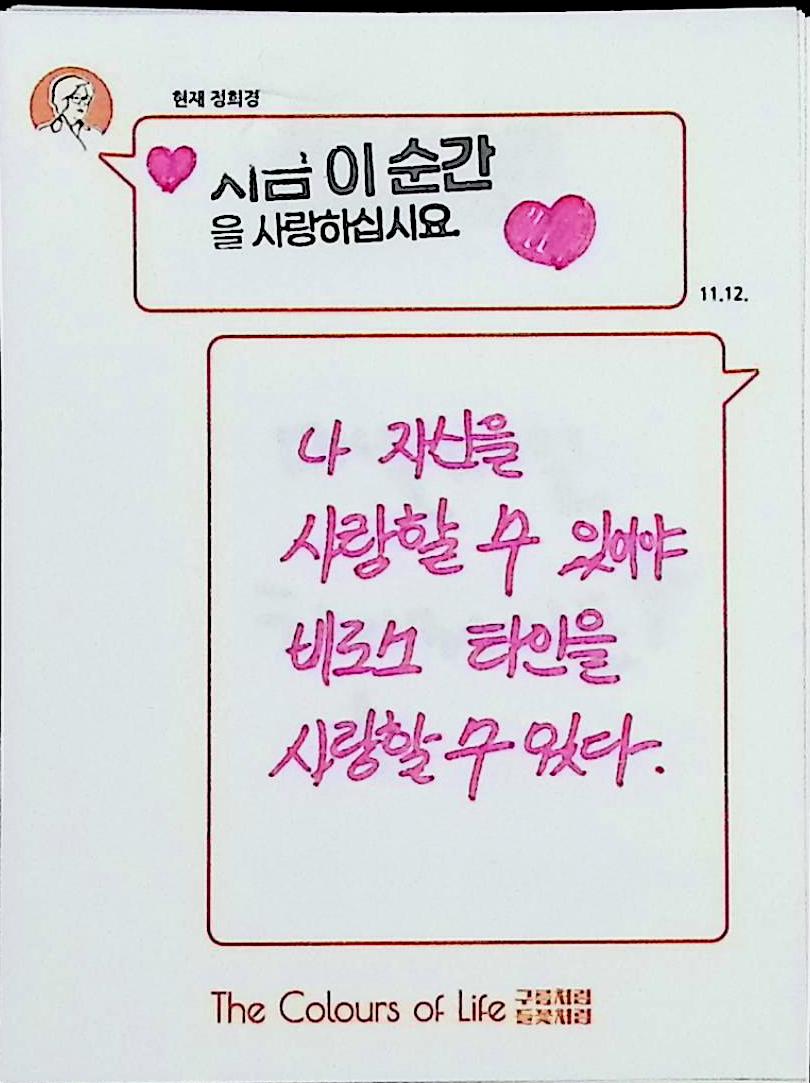 현재 정희경
지금 이 순간
을 사랑하십시요.
11.12.
나 자신을
사랑할 수 있어야
비로소 타인을
사랑할 수 있다.
The Colours of Life 구름처럼
들꽃처럼